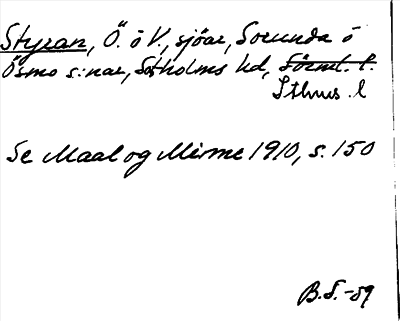 Styran, Ö. o V., sjöar, Sorunda o
Ösmo s:nar, Sotholms hd, Sörml. l.
Sthms l
Se Maal og Minne 1910, s. 150
B.S. -59